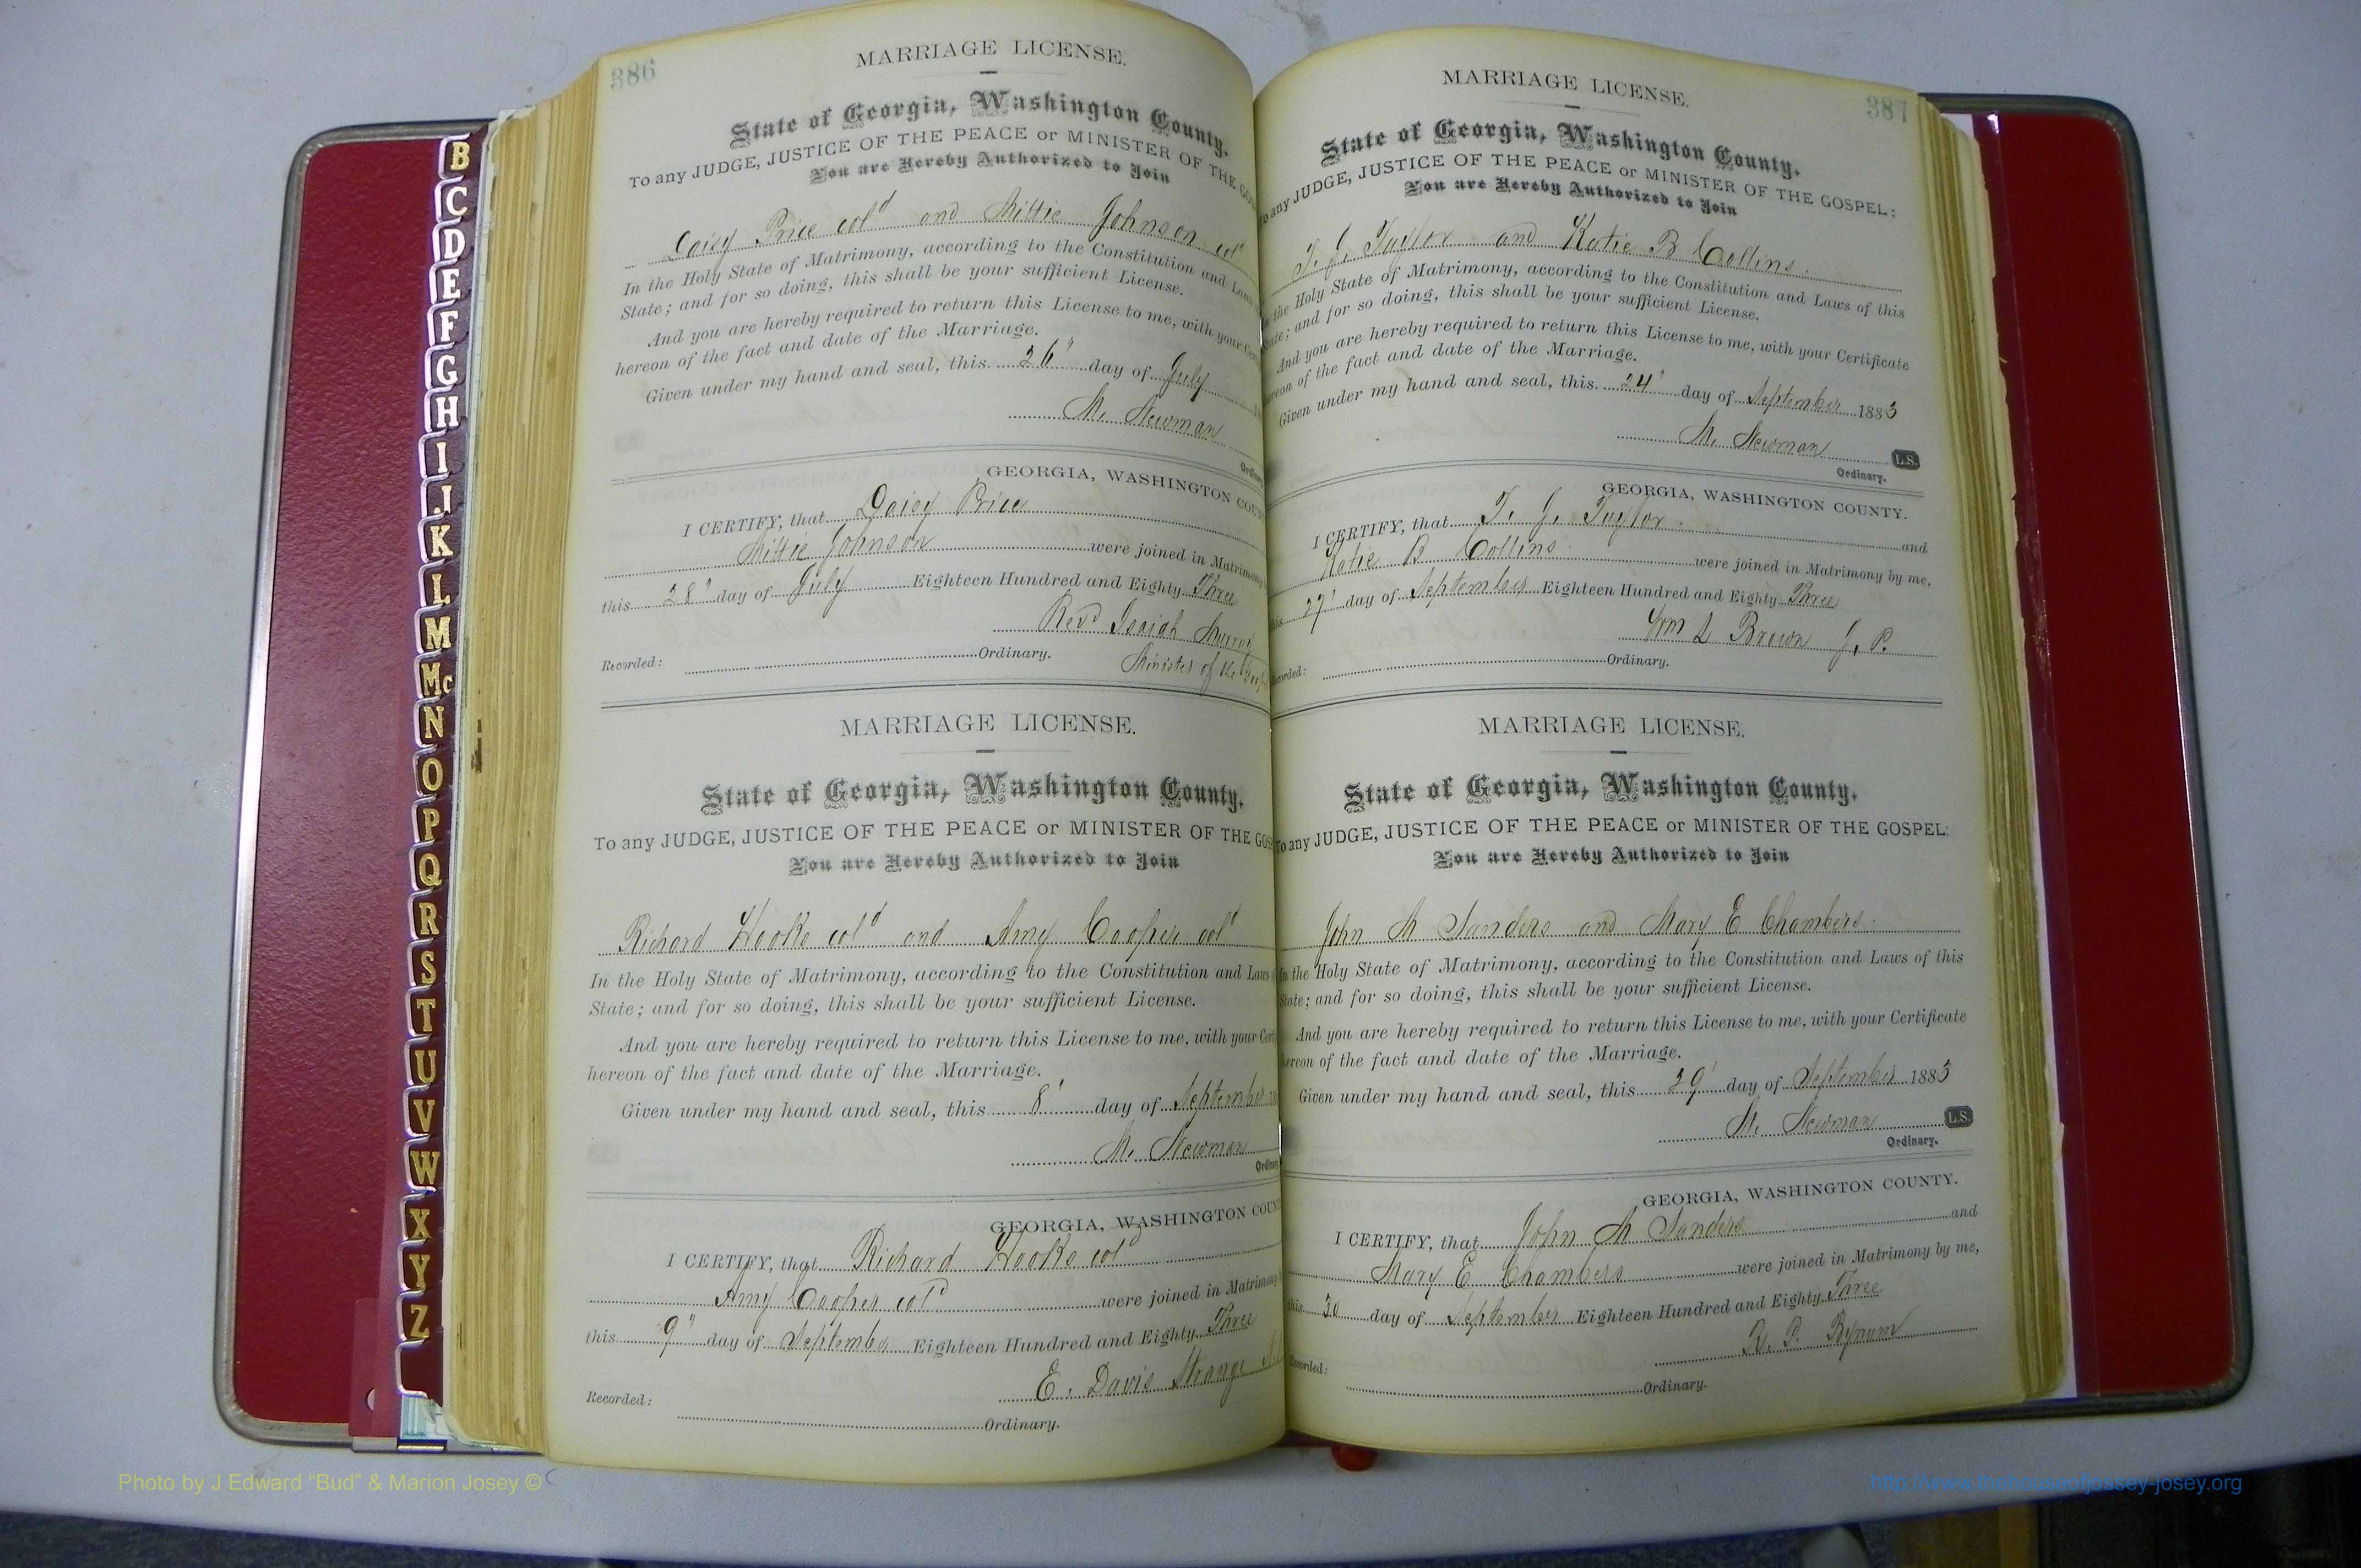 386
MARRIAGE LICENSE.
State of Georgia, Washington County.
To any JUDGE, JUSTICE OF THE PEACE or MINISTER OF THE GO
You are Hereby Authorized to Join
Daisy Price col'd and Mittie Johnson col
In the Holy State of Matrimony, according to the Constitution and Laws
State; and for so doing, this shall be your sufficient License.
And you are hereby required to return this License to me, with your Cer
hereon of the fact and date of the Marriage.
Given under my hand and seal, this 26" day of July
M. Newman
Ordinary
GEORGIA, WASHINGTON COUN
I CERTIFY, that Daisy Price
Mittie Johnson were joined in Matrimony
this 28" day of July Eighteen Hundred and Eighty Three
Rev'd Isaiah Murray
Recorded: Ordinary. Minister of the Gosp
MARRIAGE LICENSE.
State of Georgia, Washington County.
To any JUDGE, JUSTICE OF THE PEACE or MINISTER OF THE GOS
You are Hereby Authorized to Join
Richard Hooks col'd and Amy Cooper col'd
In the Holy State of Matrimony, according to the Constitution and Laws
State; and for so doing, this shall be your sufficient License.
And you are hereby required to return this License to me, with your Certi
hereon of the fact and date of the Marriage.
Given under my hand and seal, this 8' day of September
M. Newman
Ordinary
GEORGIA, WASHINGTON COUN
I CERTIFY, that Richard Hooks col'd
Amy Cooper col'd were joined in Matrimony
this 9" day of September Eighteen Hundred and Eighty Three
E. Davis Strange
Recorded: Ordinary.
387
MARRIAGE LICENSE.
State of Georgia, Washington County.
To any JUDGE, JUSTICE OF THE PEACE or MINISTER OF THE GOSPEL:
You are Hereby Authorized to Join
T. J. Taylor and Katie B Collins.
In the Holy State of Matrimony, according to the Constitution and Laws of this
State; and for so doing, this shall be your sufficient License.
And you are hereby required to return this License to me, with your Certificate
hereon of the fact and date of the Marriage.
Given under my hand and seal, this 24' day of September 1883
M. Newman L.S.
Ordinary.
GEORGIA, WASHINGTON COUNTY.
I CERTIFY, that T. J. Taylor. and
Katie B Collins were joined in Matrimony by me,
this 27' day of September Eighteen Hundred and Eighty Three
Wm L Brown J. P.
Recorded: Ordinary.
MARRIAGE LICENSE.
State of Georgia, Washington County.
To any JUDGE, JUSTICE OF THE PEACE or MINISTER OF THE GOSPEL:
You are Hereby Authorized to Join
John M Sanders and Mary E Chambers.
In the Holy State of Matrimony, according to the Constitution and Laws of this
State; and for so doing, this shall be your sufficient License.
And you are hereby required to return this License to me, with your Certificate
hereon of the fact and date of the Marriage.
Given under my hand and seal, this 29' day of September 1883
M. Newman L.S.
Ordinary.
GEORGIA, WASHINGTON COUNTY.
I CERTIFY, that John M Sanders and
Mary E Chambers were joined in Matrimony by me,
this 30 day of September Eighteen Hundred and Eighty Three
R. P. Bynum
Recorded: Ordinary.
B
C
D
E
F
G
H
I
J
K
L
M
Mc
N
O
P
Q
R
S
T
U
V
W
X
Y
Z
Photo by J Edward “Bud” & Marion Josey ©
http://www.thehouseofjossey-josey.org